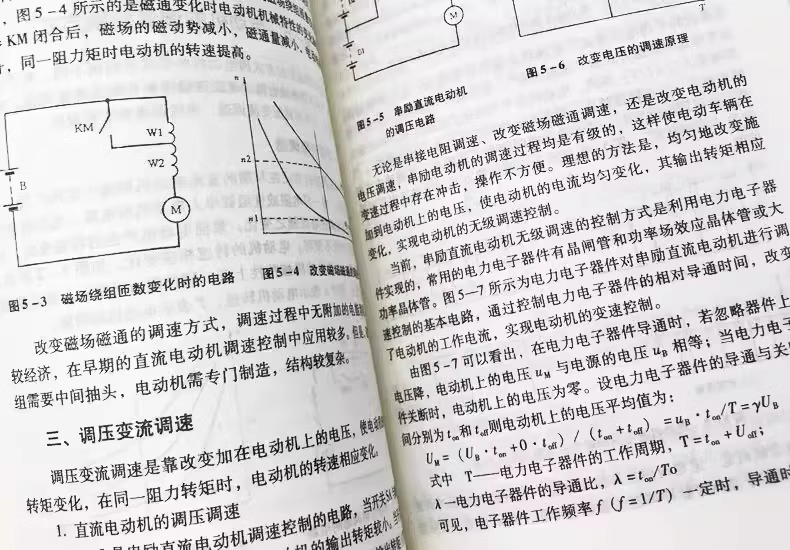 ，图5-4所示的是磁通变化时电动机机械特性的
KM闭合后，磁场的磁动势减小，磁通量减小，
，同一阻力矩时电动机的转速提高。
KM
W1
W2
B
M
n
n2
n1
图5-3 磁场绕组匝数变化时的电路
图5-4 改变磁场磁通
改变磁场磁通的调速方式，调速过程中无附加的电能
较经济，在早期的直流电动机调速控制中应用较多。但是
组需要中间抽头，电动机需专门制造，结构较复杂。
三、调压变流调速
调压变流调速是靠改变加在电动机上的电压，使
转矩变化，在同一阻力转矩时，电动机的转速相应变化。
1. 直流电动机的调压调速
串励直流电动机调速控制的电路，当开关
机的输出转矩较小。
M
T
图5-5 串励直流电动机
的调压电路
图5-6 改变电压的调速原理
无论是串接电阻调速、改变磁场磁通调速，还是改变电动机的
电压调速，串励电动机的调速过程均是有级的，这样使电动车辆在
变速过程中存在冲击，操作不方便。理想的方法是，均匀地改变施
加到电动机上的电压，使电动机的电流均匀变化，其输出转矩相应
变化，实现电动机的无级调速控制。
当前，串励直流电动机无级调速的控制方式是利用电力电子器
件实现的，常用的电力电子器件有晶闸管和功率场效应晶体管或大
功率晶体管。图5—7所示为电力电子器件对串励直流电动机进行调
速控制的基本电路，通过控制电力电子器件的相对导通时间，改变
了电动机的工作电流，实现电动机的变速控制。
由图5-7可以看出，在电力电子器件导通时，若忽略器件上
电压降，电动机上的电压uM与电源的电压uB相等；当电力电子
件关断时，电动机上的电压为零。设电力电子器件的导通与关
间分别为ton和toff则电动机上的电压平均值为：
UM=（UB·ton+0·toff）/（ton+toff）=uB·ton/T=γUB
式中 T——电力电子器件的工作周期，T=ton+Uoff；
λ—电力电子器件的导通比，λ=ton/To
可见，电子器件工作频率f（f=1/T）一定时，导通时